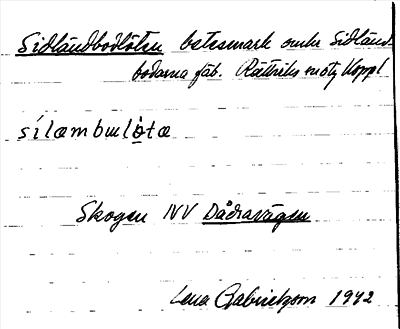 Sidländbodlöten betesmark omkr Sidländ-
bodarna fäb. Rättviks
sílæmbuḷȯtæ
Skogen NV Dådravägen
Lena Gabrielsson 1942